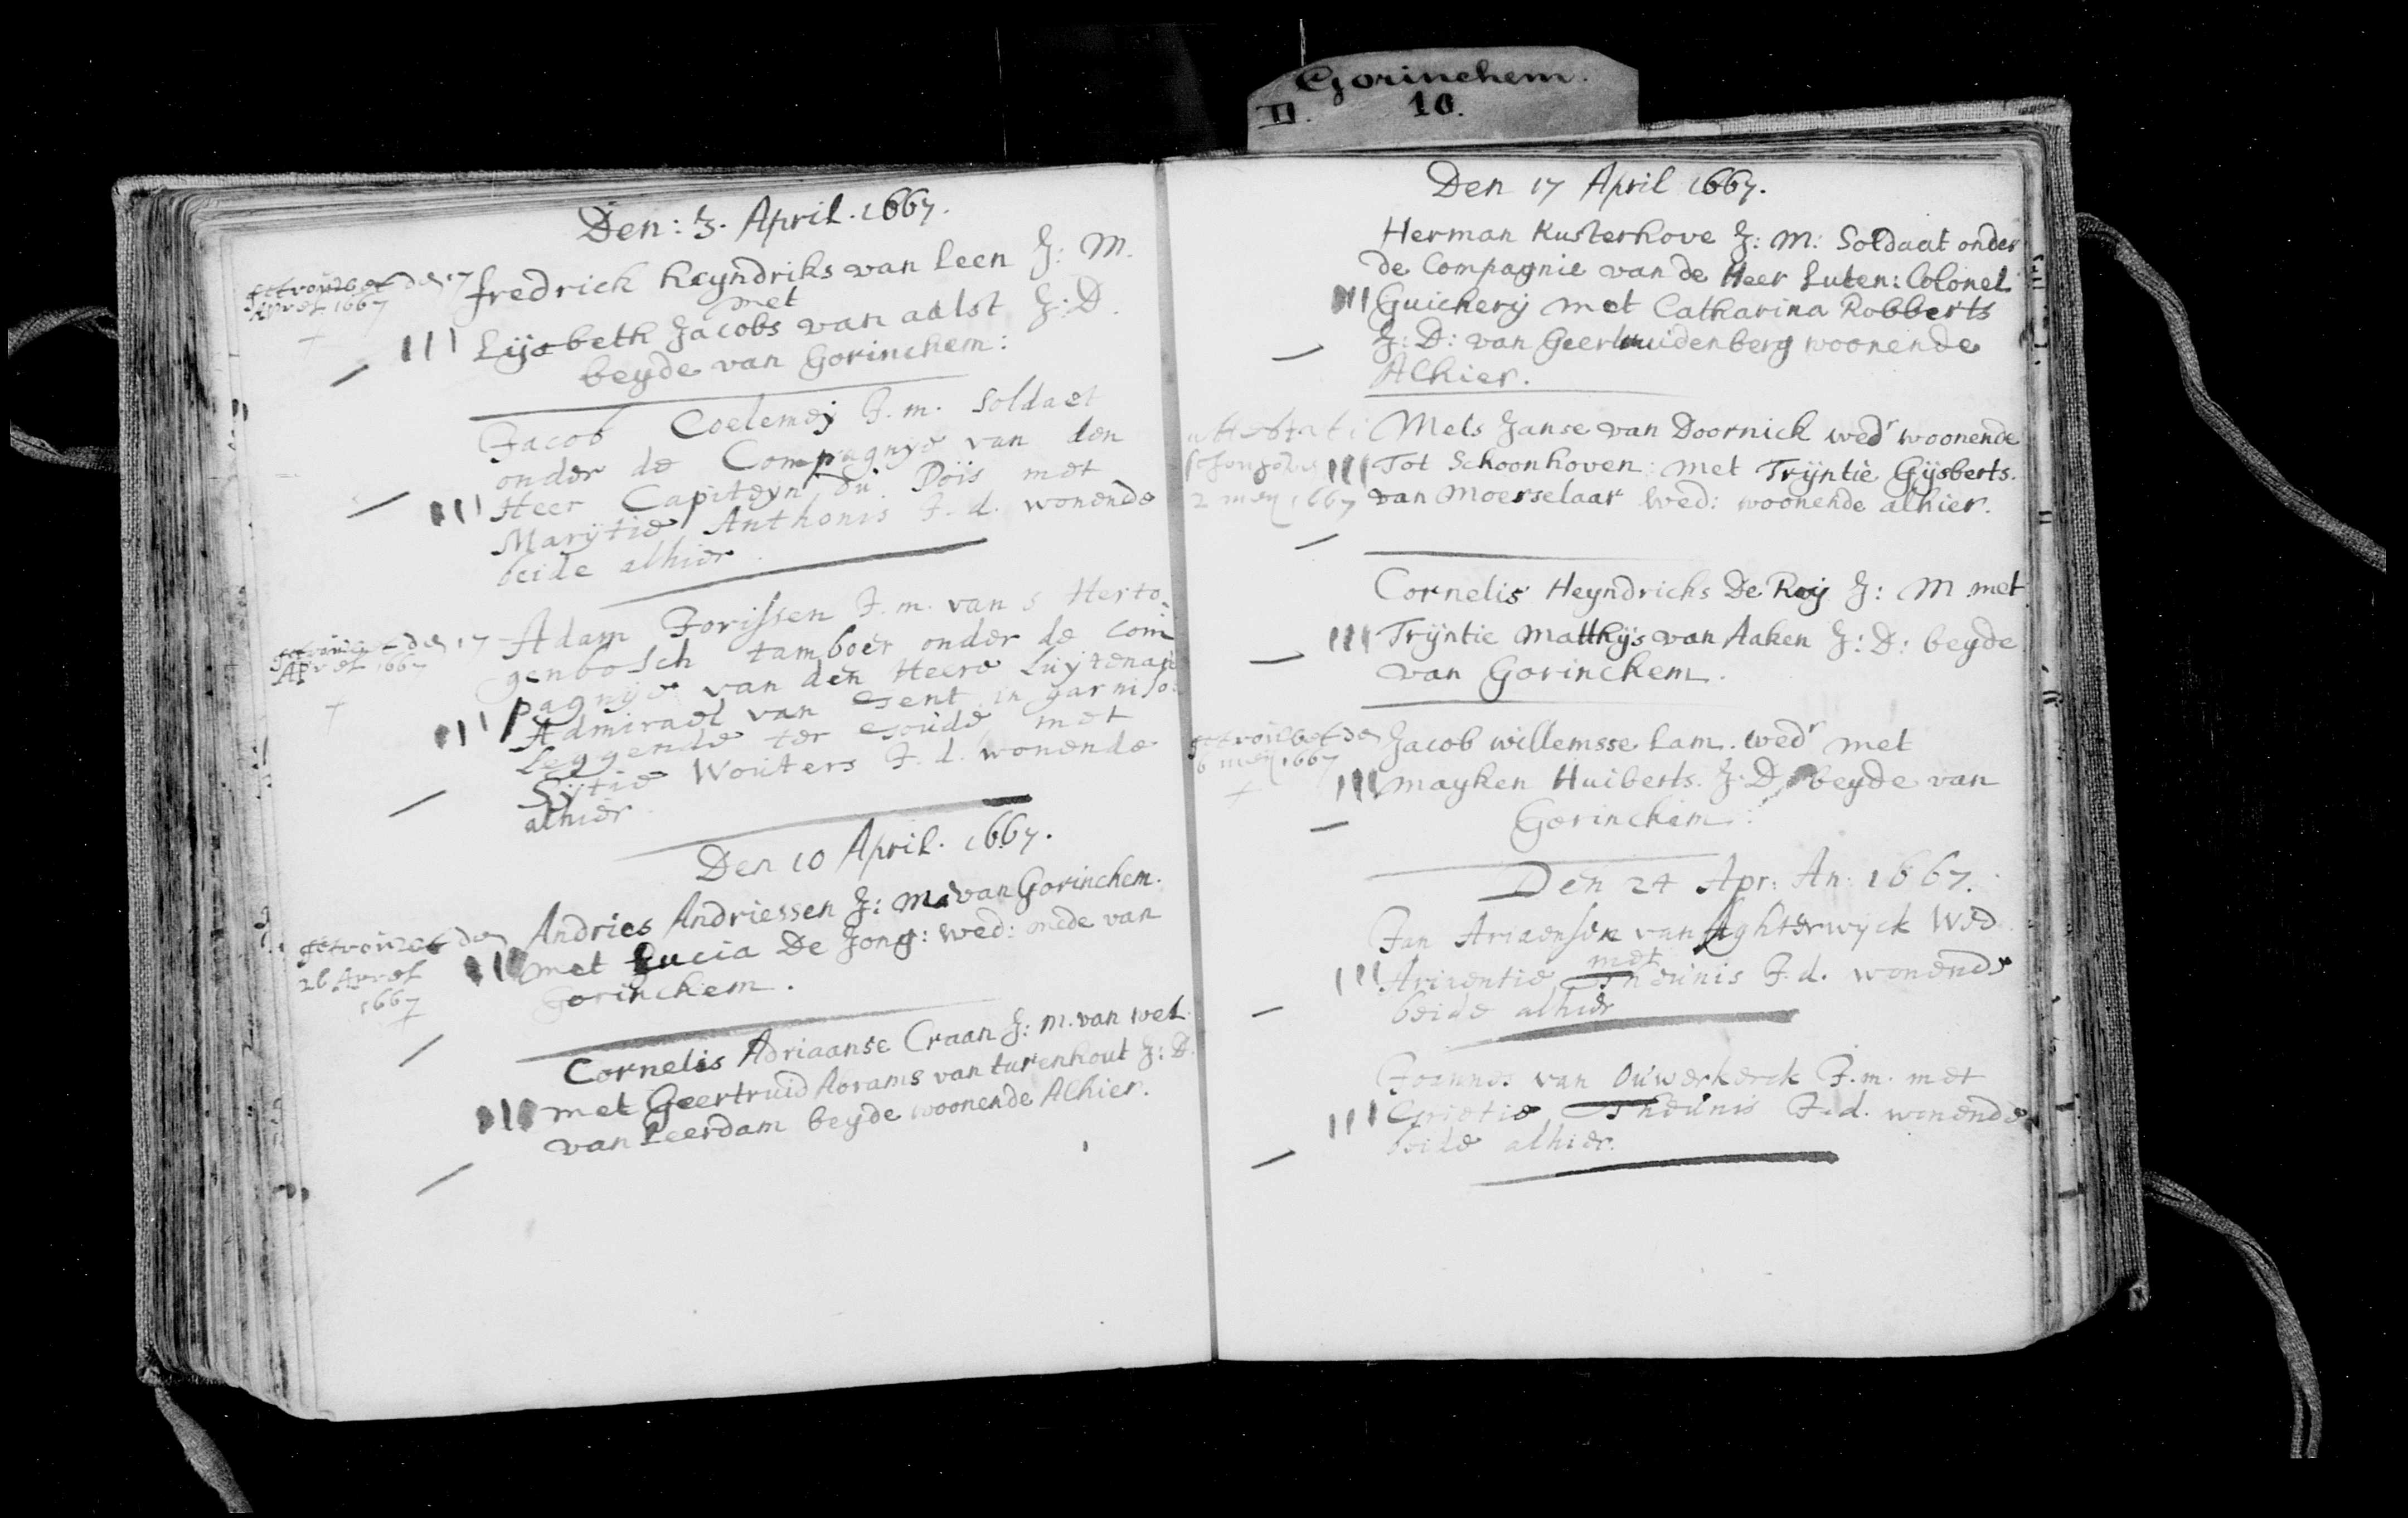 Gorinchem.
II. 10.
Den: 3. April. 1667.
getrouwet den 17
April 1667
fredrick heyndriks van Leen J: M.
met
Lijsbeth Jacobs van aalst J: D.
beyde van Gorinchem:
Jacob Coelemeij J. m. soldaet
onder de Compagnye van den
Heer Capiteyn du Pöis met
Marijtie Anthonis J. d. wonende
beide alhier.
getrouwet den 17
April 1667
Adam Jorissen J. m. van s Herto-
genbosch tamboer onder de Com
pagnije van den Heere Luijtenan
Admirael van Gent in garniso
leggende ter Goude met
Sijtie Wouters J. d. wonende
alhier.
Den 10 April. 1667.
getrouwet den
26 April
1667
Andries Andriessen J: M: van Gorinchem.
met Lucia De Jong: wed: mede van
Gorinchem.
Cornelis Adriaanse Craan J: m. van wel
met Geertruid Abrams van turenhout J: D.
van Leerdam beyde woonende Alhier.
Den 17 April 1667.
Herman Kusterhove J: M: Soldaat onder
de Compagnie van de Heer Luten: Colonel
Guickerij met Catharina Robberts
J: D: van Geertruidenberg woonende
Alhier.
attestati
schonhoven
2 meij 1667
Mels Janse van Doornick wedr woonende
Tot Schoonhoven: met Trijntie Gijsberts.
van Moersselaar wed: woonende alhier.
Cornelis Heyndricks De Roij J: M met
Trijntie Matthijs van Aaken J: D: beyde
van Gorinchem.
getrouwet den
6 meij 1667
Jacob willemsse Lam. wedr met
mayken Huiberts. J: D: beyde van
Gorinchem:
Den 24 Apr: An: 1667.
Jan Ariaensen van Aghterwyck Wed
met
Ariaentie Theunis J. d. wonende
beide alhier
Joannes van Ouwerkerck J. m. met
Grietie Theunis J. d. wonende
beide alhier.